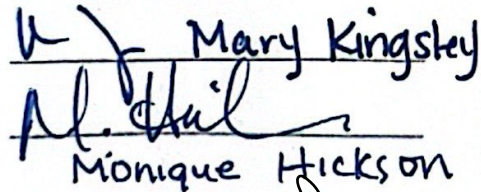 Mary Kingsley
M.
Monique Hickson